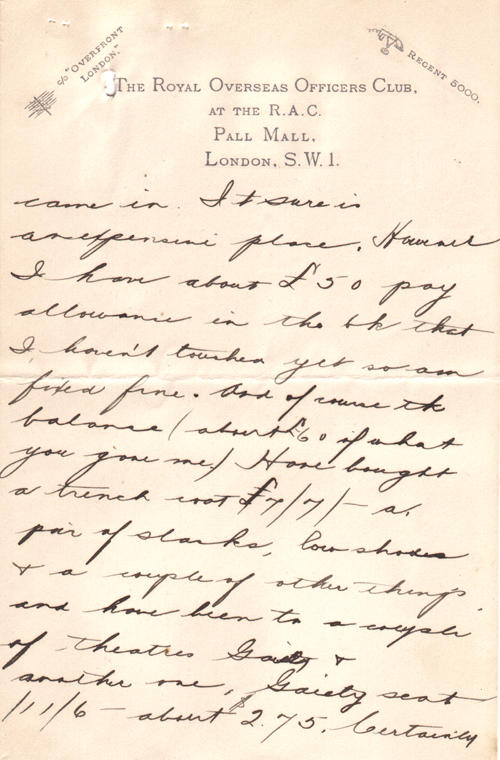 c/o "OVERFRONT
LONDON."
REGENT 5000.
THE ROYAL OVERSEAS OFFICERS CLUB,
AT THE R.A.C.
PALL MALL,
LONDON, S.W.1.
came in. It sure is
an expensive place. However
I have about £50 pay
allowance in the bk that
I haven't touched yet so am
fixed fine. And of course the
balance (about £60 of what
you gave me) Have bought
a trench coat £7/7/- a
pair of slacks, low shoes
& a couple of other things
and have been to a couple
of theatres Gaiety &
another one, Gaiety seat
/11/6 - about $2.75. Certainly